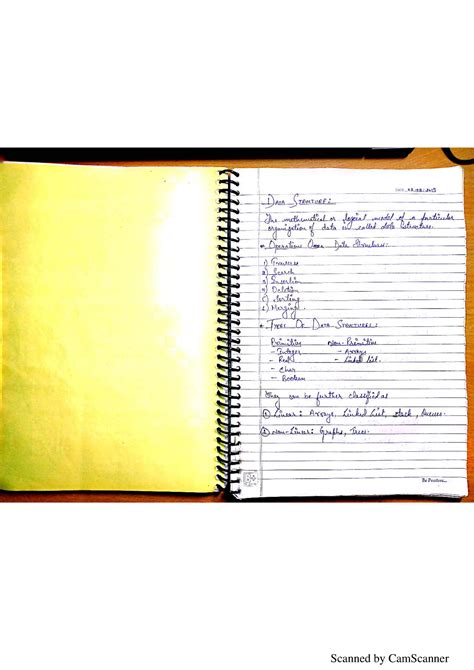 DATA STRUCTURE:
The mathematical or logical model of a particular
organization of data is called data structure.
* Operations Over Data Structure:
1) Traverse
2) Search
3) Insertion
4) Deletion
5) Sorting
6) Merging
* TYPES OF DATA STRUCTURE:
Primitive Non-Primitive
- Integer - Arrays
- Real - Linked List.
- Char
- Boolean
They can be further classified as
① Linear: Arrays, Linked List, stack, Queues.
② Non-Linear: Graphs, Trees.
Be Positive...
Scanned by CamScanner